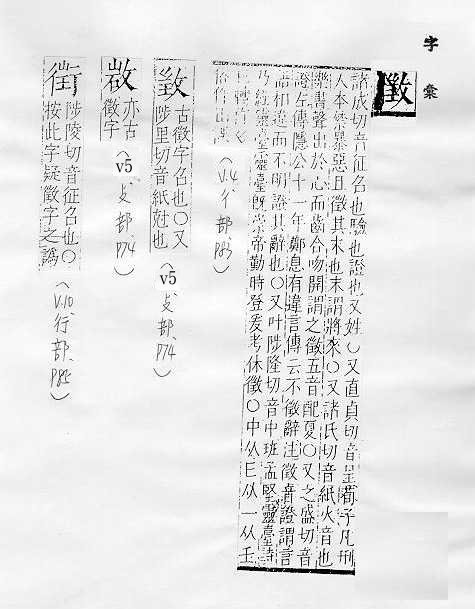 字彙
徵
諸成切音征召也驗也證也又姓○又直貞切音呈荀子凡刑
人本禁暴惡且徵其末也末謂將來○又諸氏切音紙火音也
樂書聲出於心而齒合吻開謂之徵五音配夏○又之盛切音
證左傳隱公十一年鄭息有違言傳云不徵辭注徵音證謂言
語相違而不明證其辭也○又叶陟隆切音中班孟堅靈臺詩
乃經靈臺靈臺旣崇帝勤時登爰考休徵○中从
(V.4.彳部.P83)
古徵字召也○又
陟里切音紙尅也
(V5.攴部.P74)
亦古
徵字
(V5.攴部.P74)
陟陵切音征召也○
按此字疑徵字之譌
(V.10.行部.P85)